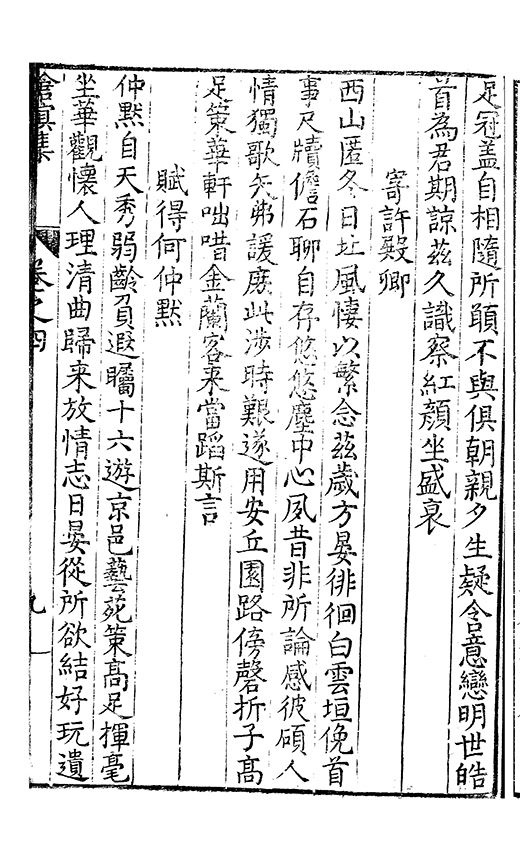 足冠盖自相隨所願不與俱朝親夕生疑含意戀明世皓
首為君期諒兹久識察紅顏坐盛衰
寄許殿卿
西山匿冬日北風悽以繁念兹歲方晏徘徊白雲垣俛首
事尺牘儋石聊自存悠悠塵中心夙昔非所論感彼碩人
情獨歌矢弗諼慶此涉時艱遂用安丘園路傍磬折子高
足策華軒咄唶金蘭客來當蹈斯言
賦得何仲默
仲默自天秀弱齡負遐矚十六遊京邑藝苑策高足揮毫
坐華觀懷人理清曲歸来放情志日晏從所欲結好玩遺
滄溟集
卷之四
九